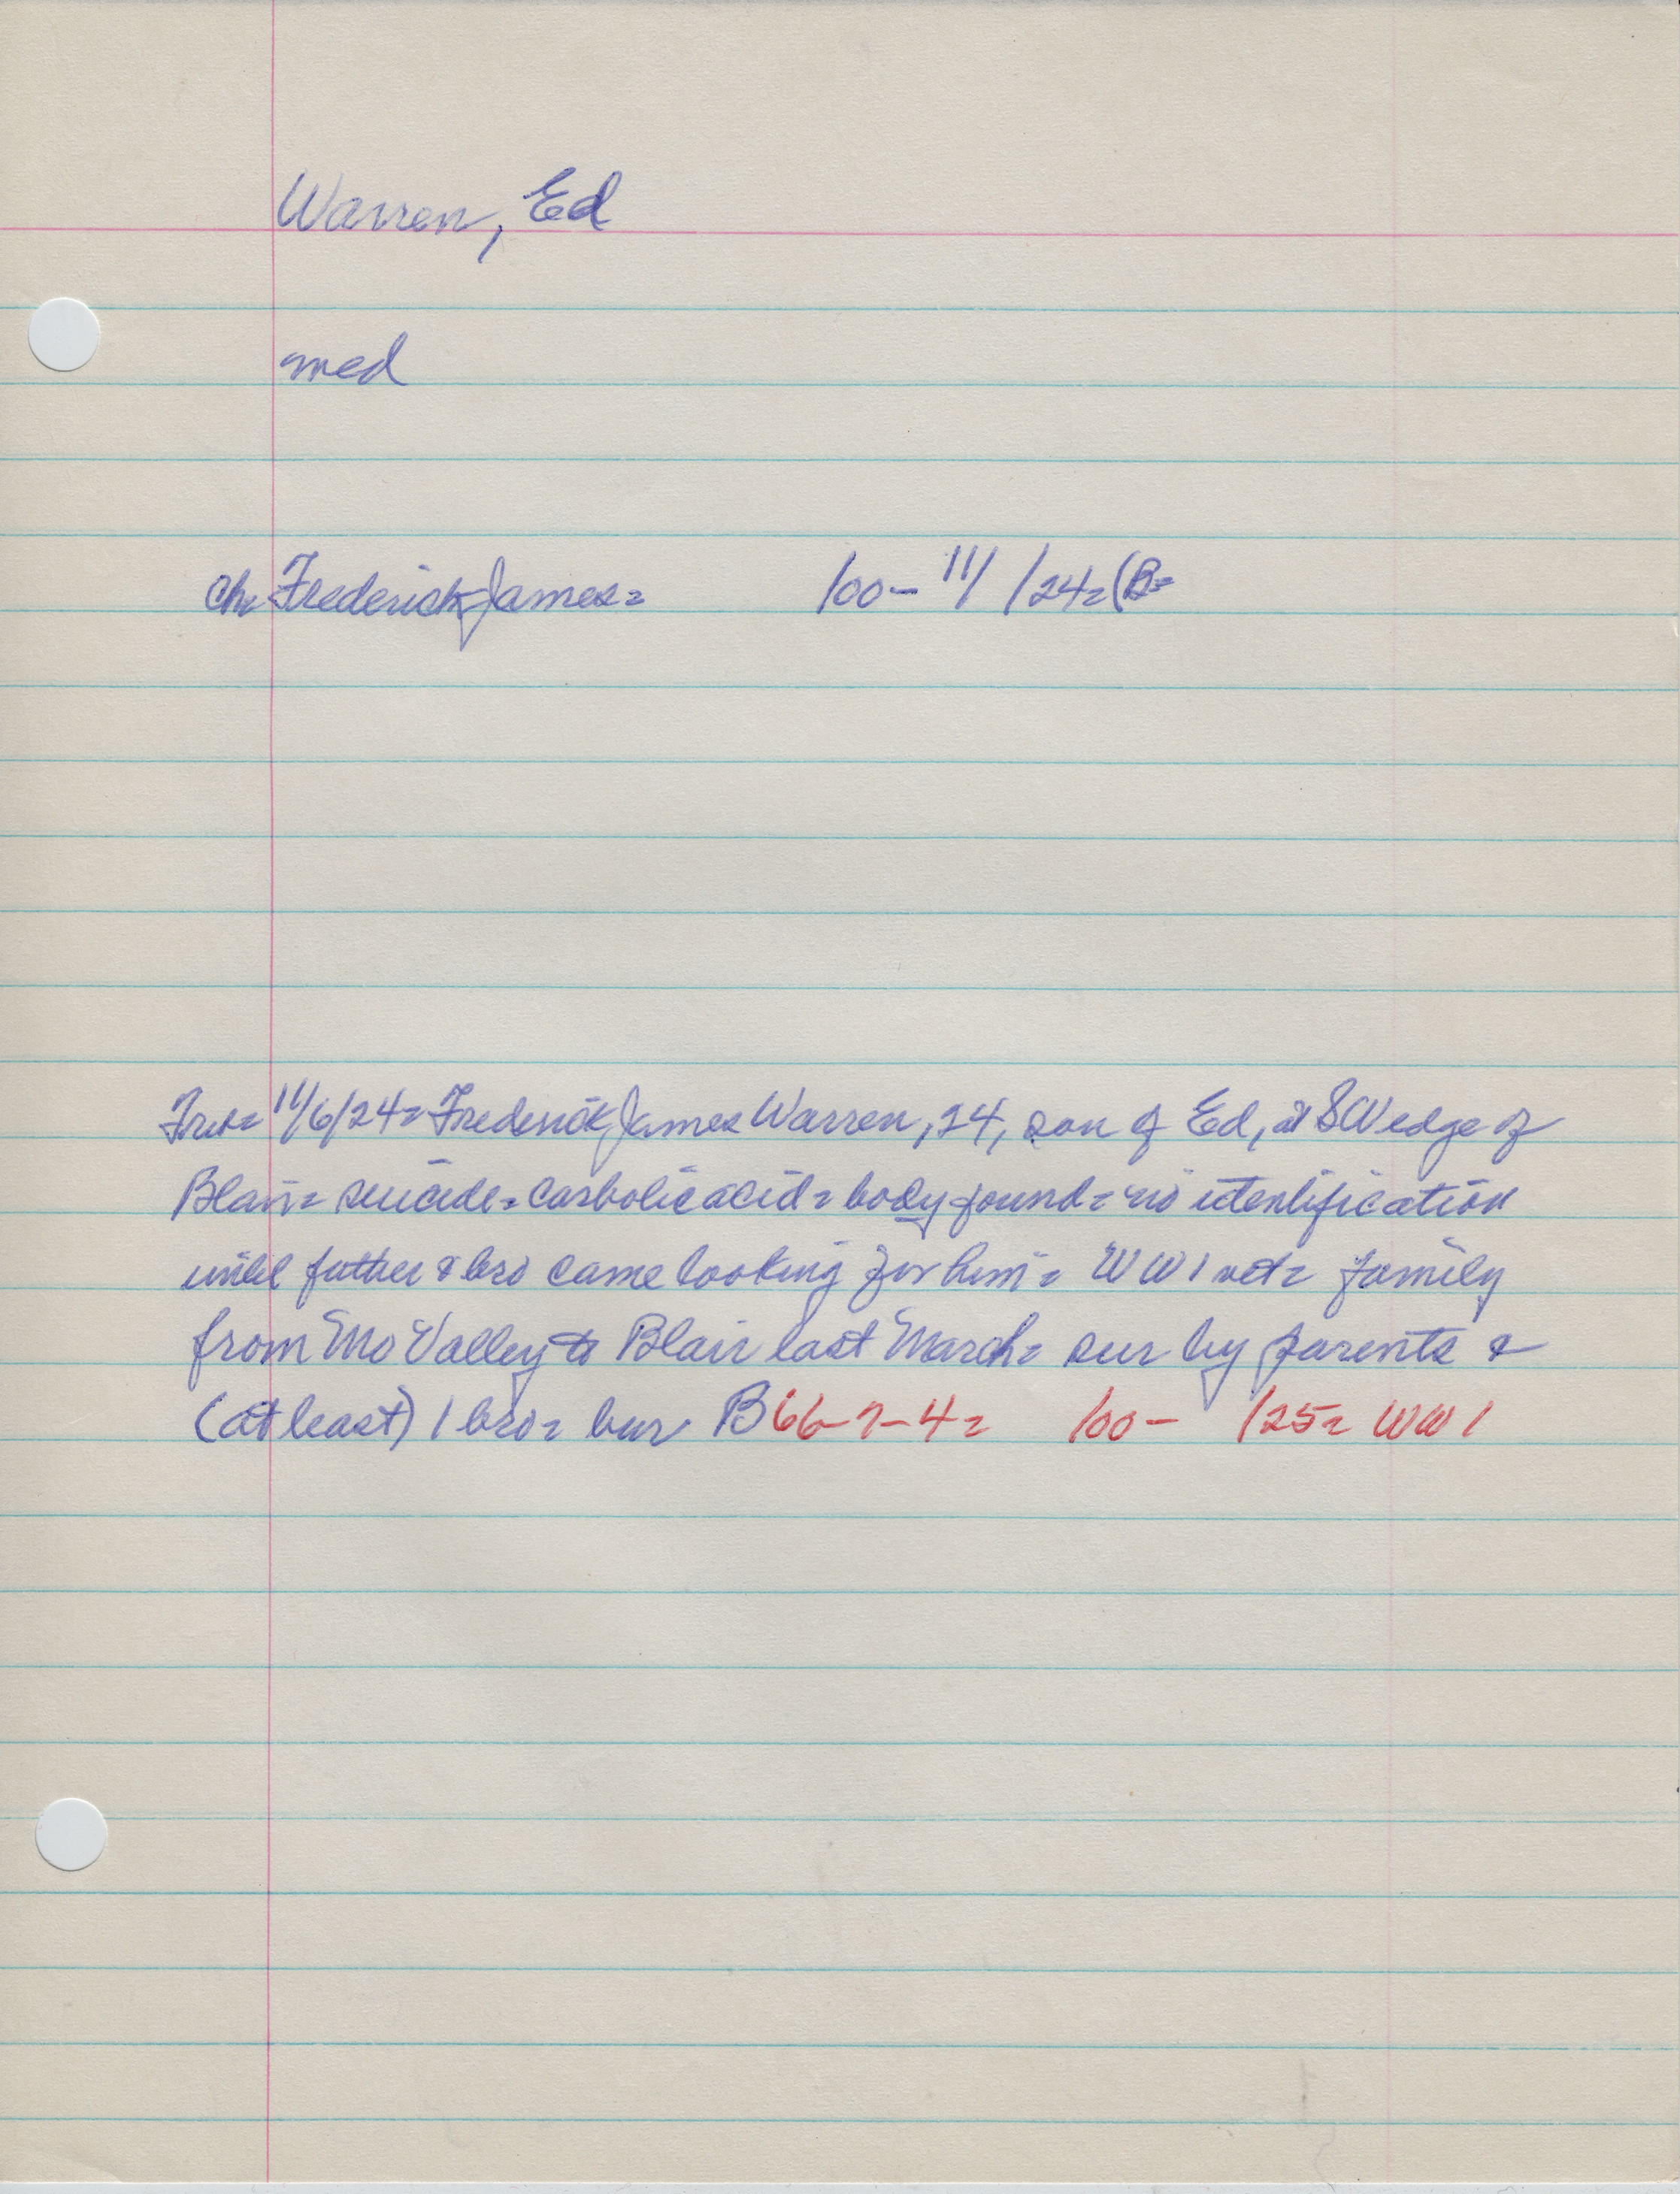 Warren, Ed
med
Ch= Frederick James= 100- 11/ /24= (B=
11/6/24= Frederick James Warren, 24, son of Ed, at SW edge of
Blair= suicide= carbolic acid= body found= no identification
until father & bro came looking for him= WW 1 vet= family
from Mo Valley to Blair last March= sur by parents &
(at least) 1 bro= bur B 66-7-4= 100- /25= WW 1